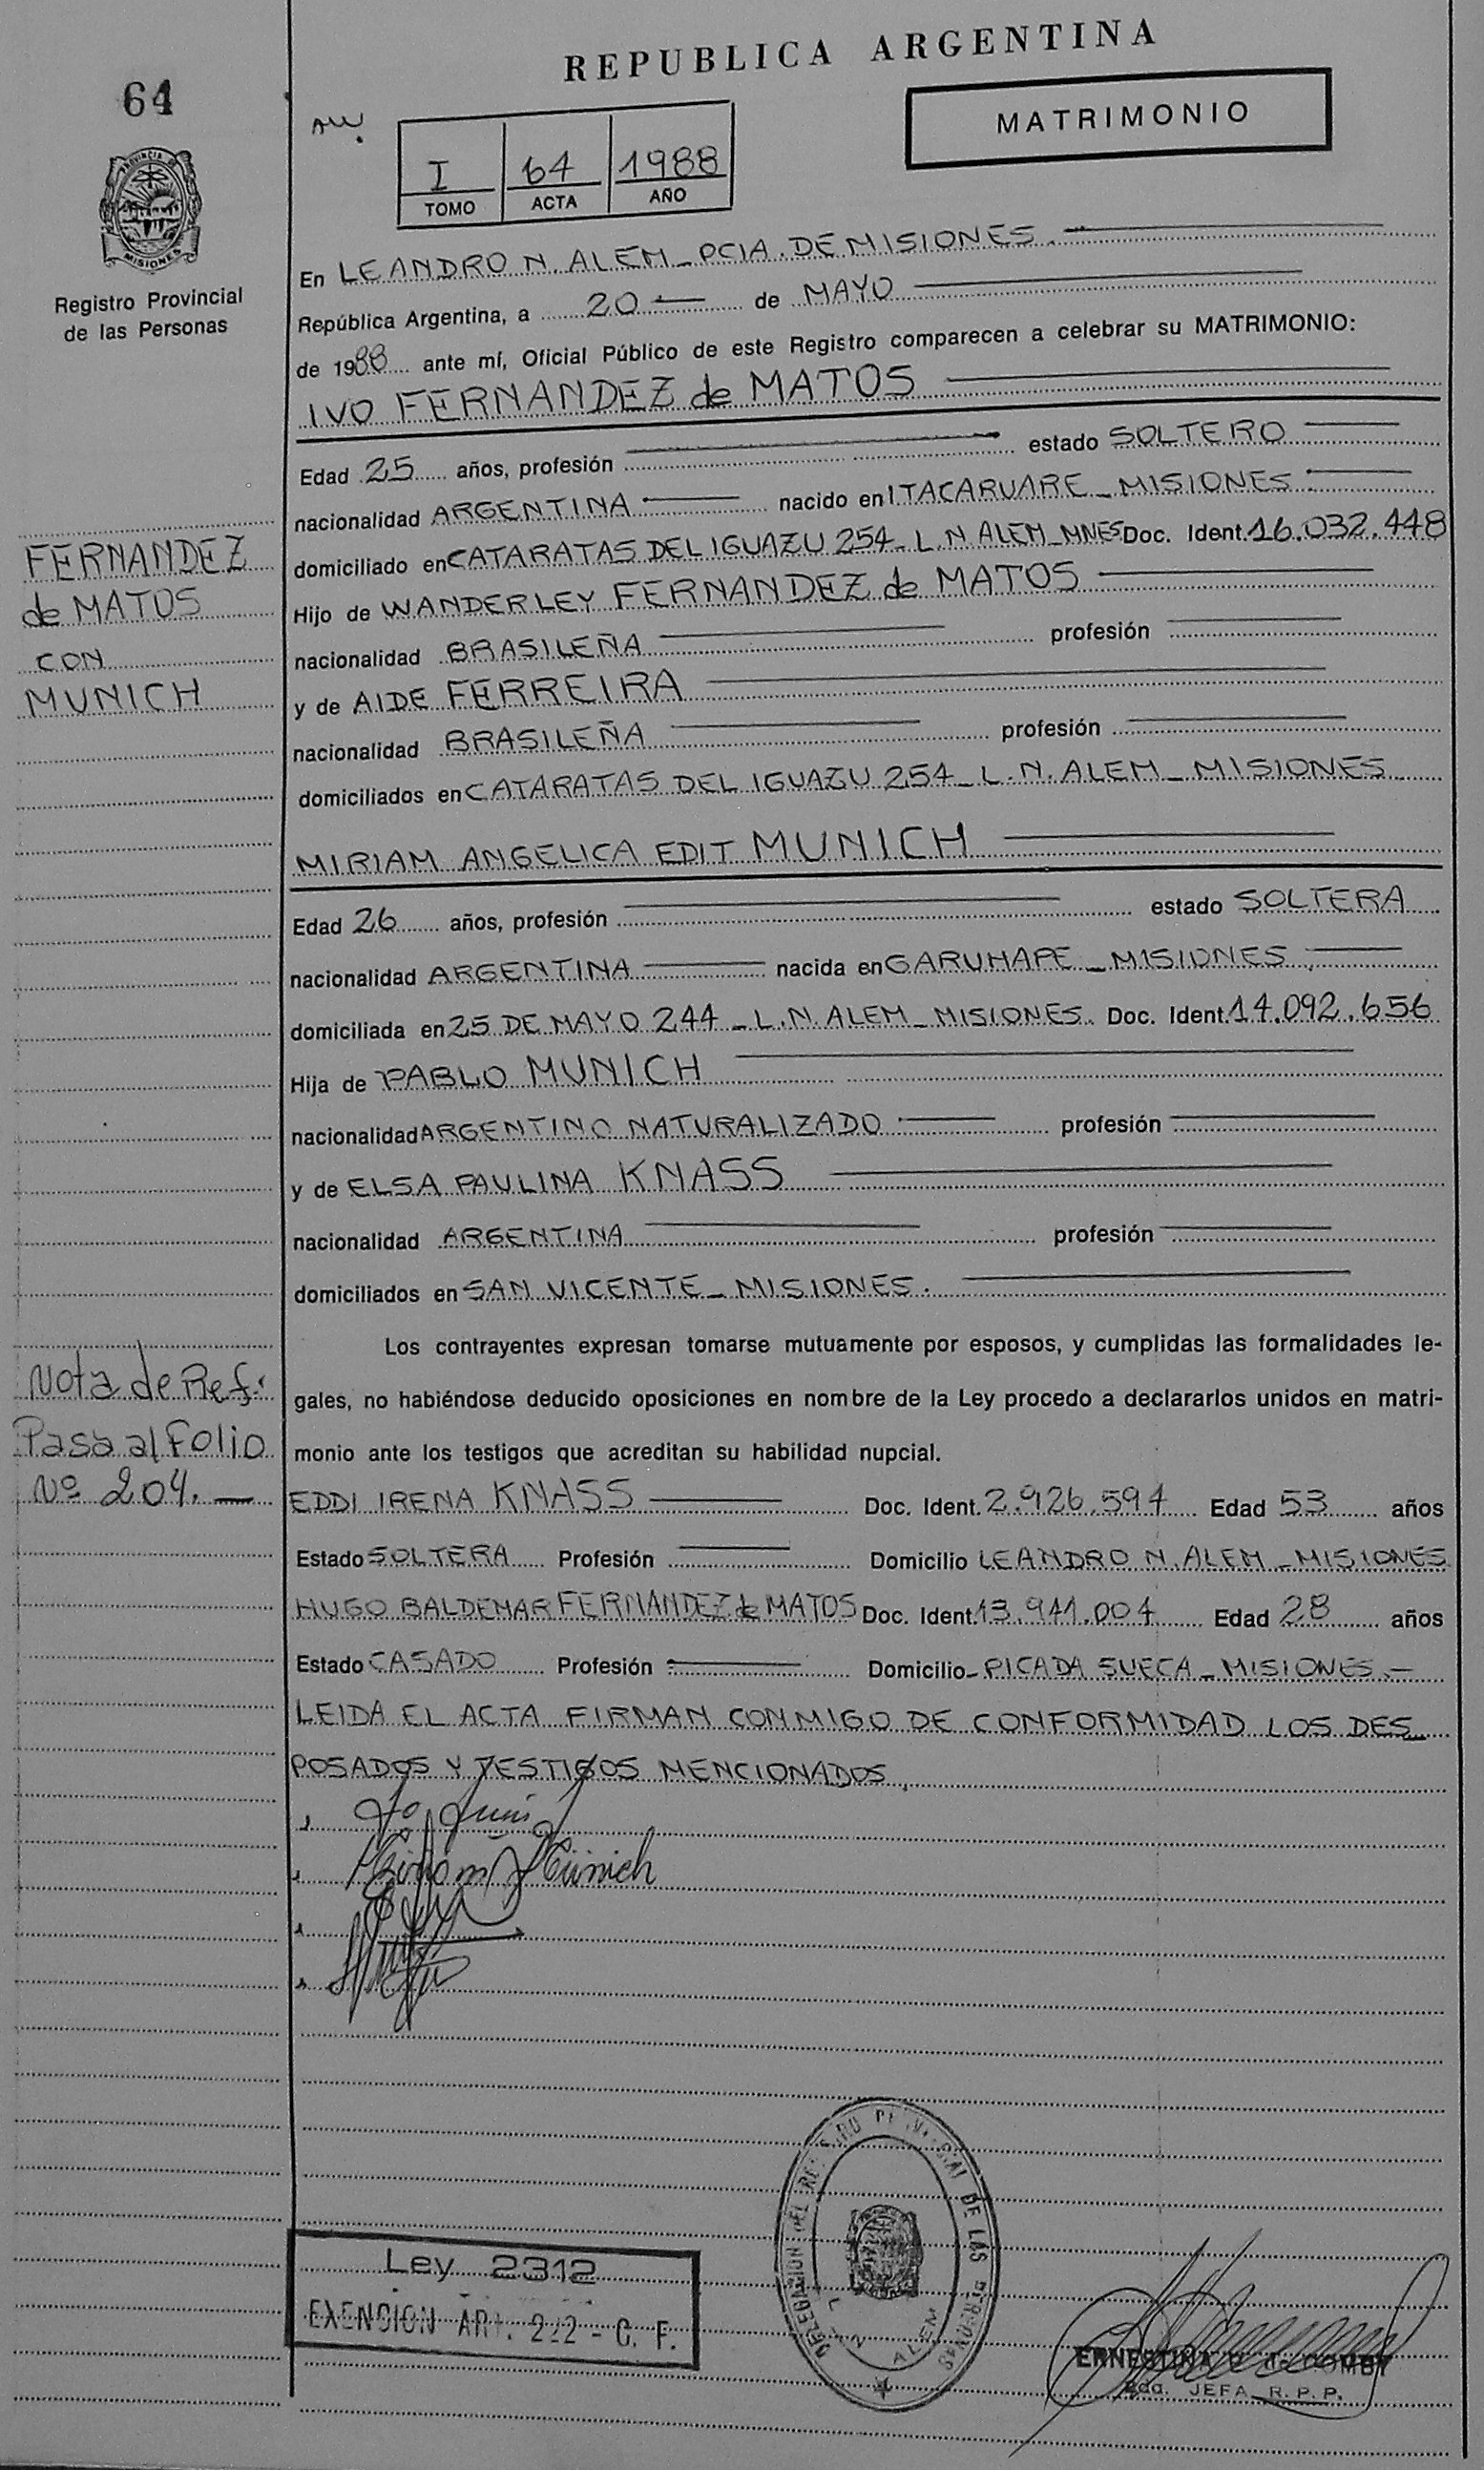 REPUBLICA ARGENTINA
64
MATRIMONIO
I 64 1988
TOMO ACTA AÑO
PROVINCIA DE
MISIONES
Registro Provincial
de las Personas
En LEANDRO N. ALEM _ PCIA. DE MISIONES.
República Argentina, a 20 de MAYO
de 1988 ante mí, Oficial Público de este Registro comparecen a celebrar su MATRIMONIO:
IVO FERNANDEZ de MATOS
Edad 25 años, profesión estado SOLTERO
nacionalidad ARGENTINA nacido en ITACARUARE _ MISIONES
domiciliado en CATARATAS DEL IGUAZU 254 _ L.N ALEM _ MNES Doc. Ident. 16.032.448
Hijo de WANDERLEY FERNANDEZ de MATOS
nacionalidad BRASILEÑA profesión
y de AIDE FERREIRA
nacionalidad BRASILEÑA profesión
domiciliados en CATARATAS DEL IGUAZU 254 _ L.N. ALEM _ MISIONES
FERNANDEZ
de MATOS
CON
MUNICH
MIRIAM ANGELICA EDIT MUNICH
Edad 26 años, profesión estado SOLTERA
nacionalidad ARGENTINA nacida en GARUHAPE _ MISIONES
domiciliada en 25 DE MAYO 244 _ L.N. ALEM _ MISIONES. Doc. Ident. 14.092.656
Hija de PABLO MUNICH
nacionalidad ARGENTINO NATURALIZADO profesión
y de ELSA PAULINA KNASS
nacionalidad ARGENTINA profesión
domiciliados en SAN VICENTE _ MISIONES.
Los contrayentes expresan tomarse mutuamente por esposos, y cumplidas las formalidades le-
gales, no habiéndose deducido oposiciones en nombre de la Ley procedo a declararlos unidos en matri-
monio ante los testigos que acreditan su habilidad nupcial.
Nota de Ref.
Pasa al Folio
Nº 204. —
EDDI IRENA KNASS Doc. Ident. 2.926.594 Edad 53 años
Estado SOLTERA Profesión Domicilio LEANDRO N. ALEM _ MISIONES
HUGO BALDEMAR FERNANDEZ de MATOS Doc. Ident. 13.941.004 Edad 28 años
Estado CASADO Profesión Domicilio PICADA SUECA _ MISIONES. —
LEIDA EL ACTA FIRMAN CONMIGO DE CONFORMIDAD LOS DES_
POSADOS Y TESTIGOS MENCIONADOS.
Miriam Münich
DELEGACION DEL REGISTRO PROVINCIAL DE LAS PERSONAS
L. N. ALEM
Ley 2312
EXENCION ART. 222 - C. F.
ERNESTINA
JEFA R. P. P.